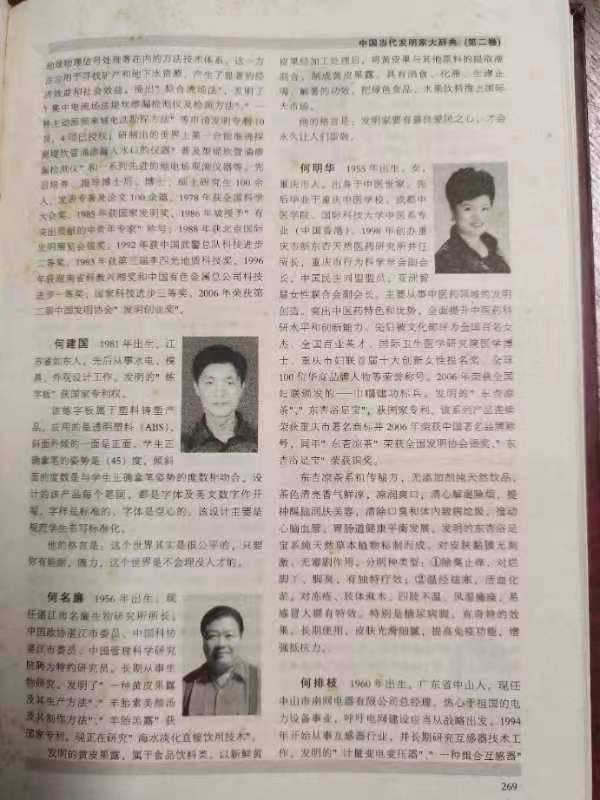 中国当代发明家大辞典（第二卷）
地球物理信号处理等在内的方法技术体系。这一方
法运用于寻找矿产和地下水资源，产生了显著的经
济效益和社会效益。提出"拟合流场法"，发明了
"集中电流场法堤坝渗漏检测仪及检测方法"，"一
等申请发明专利10
项，4项已授权；研制出的世界上第一台能准确探
测堤坝管涌渗漏入水口的仪器"普及型堤坝管涌渗
漏检测仪"和一系列先进的地电场观测仪器等。先
后培养博士后、博士、硕士研究生100余
人，发表专著及论文100余篇。1978年获全国科学
大会奖，1985年获国家发明奖，1986年被授予"有
突出贡献的中青年专家"称号；1988年获北京国际
发明展览会银奖；1992年获中国武警总队科技进步
二等奖；1983年获第三届李四光地质科技奖，1996
年获湖南省科教兴湘奖和中国有色金属总公司科技
进步一等奖；国家科技进步三等奖。2006年荣获第
二届中国发明协会"发明创业奖"。
何建国　1981年出生，江
苏省如东人。先后从事水电、模
具、外观设计工作。发明的"练
字板"获国家专利权。
该练字板属于塑料铸型产
品，应用的是透明塑料（ABS），
斜面外倾的一面是正面。学生正
确拿笔的姿势是（45）度，倾斜
面的度数是与学生正确拿笔姿势的度数相吻合。设
计的该产品每个笔画，都是字体及英文数字作开
幅，字样是标准的，字体是空心的。该设计主要是
规范学生书写标准化。
他的格言是：这个世界其实是很公平的，只要
你有能耐、魄力，这个世界是不会埋没人才的。
何名廉　1956年出生。现
任湛江市名廉生物研究所所长；
中国政协湛江市委员、中国科协
湛江市委员、中国管理科学研究
院聘为特约研究员。长期从事生
物研究。发明了"一种黄皮果露
及其生产方法"；"羊胎素美颜汤
及其制作方法"；"羊胎美露"获
国家专利。现正在研究"海水淡化直接饮用技术"。
发明的黄皮果露，属于食品饮料类，以新鲜黄
皮果经加工处理后，将黄皮果与其他原料的提取液
混合，制成黄皮果露。具有消食、化滞、生津止
渴、解暑的功效。把绿色食品、水果饮料推上国际
大市场。
他的格言是：发明家要有爱国之心，才会
永久让人们崇敬。
何明华　1955年出生，女，
重庆市人。出身于中医世家，先
后毕业于重庆中医学校、成都中
医学院、国际科技大学中医系专
业（中国香港）。1998年创办重
庆市渝东杏天然医药研究所并任
所长，重庆市行为科学学会副会
长，中国民主同盟盟员，亚洲智
慧女性联合会副会长。主要从事中医药领域的发明
创造，突出中医药特色和优势，全面提升中医药科
研水平和创新能力。先后被文化部评为全国百名女
杰、全国百业英才、国际卫生医学研究院医学博
士、重庆市妇联首届十大创新女性提名奖、全球
100位华商品牌人物等荣誉称号。2006年荣获全国
妇联颁发的——巾帼建功标兵。发明的"东杏凉
茶"，"东杏浴足宝"，获国家专利。该系列产品连续
荣获重庆市著名商标并2006年荣获中国著名品牌称
号，同年"东杏凉茶"荣获全国发明协会银奖，"东
杏浴足宝"荣获铜奖。
东杏凉茶系祖传秘方，无添加剂纯天然饮品，
茶色清亮香气鲜淳，凉润爽口，清心解暑除烦，提
神醒脑润肤美容，清除口臭和体内酸碱垃圾，推动
心脑血管、胃肠道健康平衡发展。发明的东杏浴足
宝系纯天然草本植物秘制而成，对皮肤黏膜无刺
激、无毒副作用，分两种类型：①除臭止痒，对烂
脚丫、脚臭，有独特疗效；②温经祛寒，活血化
瘀。对冻疮、肢体麻木、四肢不温、风湿瘫痪，易
感冒人群有特效。特别是糖尿病脚，有奇特的效
果。长期使用，皮肤光滑细腻，提高免疫功能，增
强抵抗力。
何排枝　1960年出生。广东省中山人，现任
中山市南网电器有限公司总经理。热心于祖国的电
力设备事业，呼吁电网建设应当从战略出发。1994
年开始从事互感器行业，并长期研究互感器技术工
作。发明的"计量变电变压器"，"一种组合互感器"
269